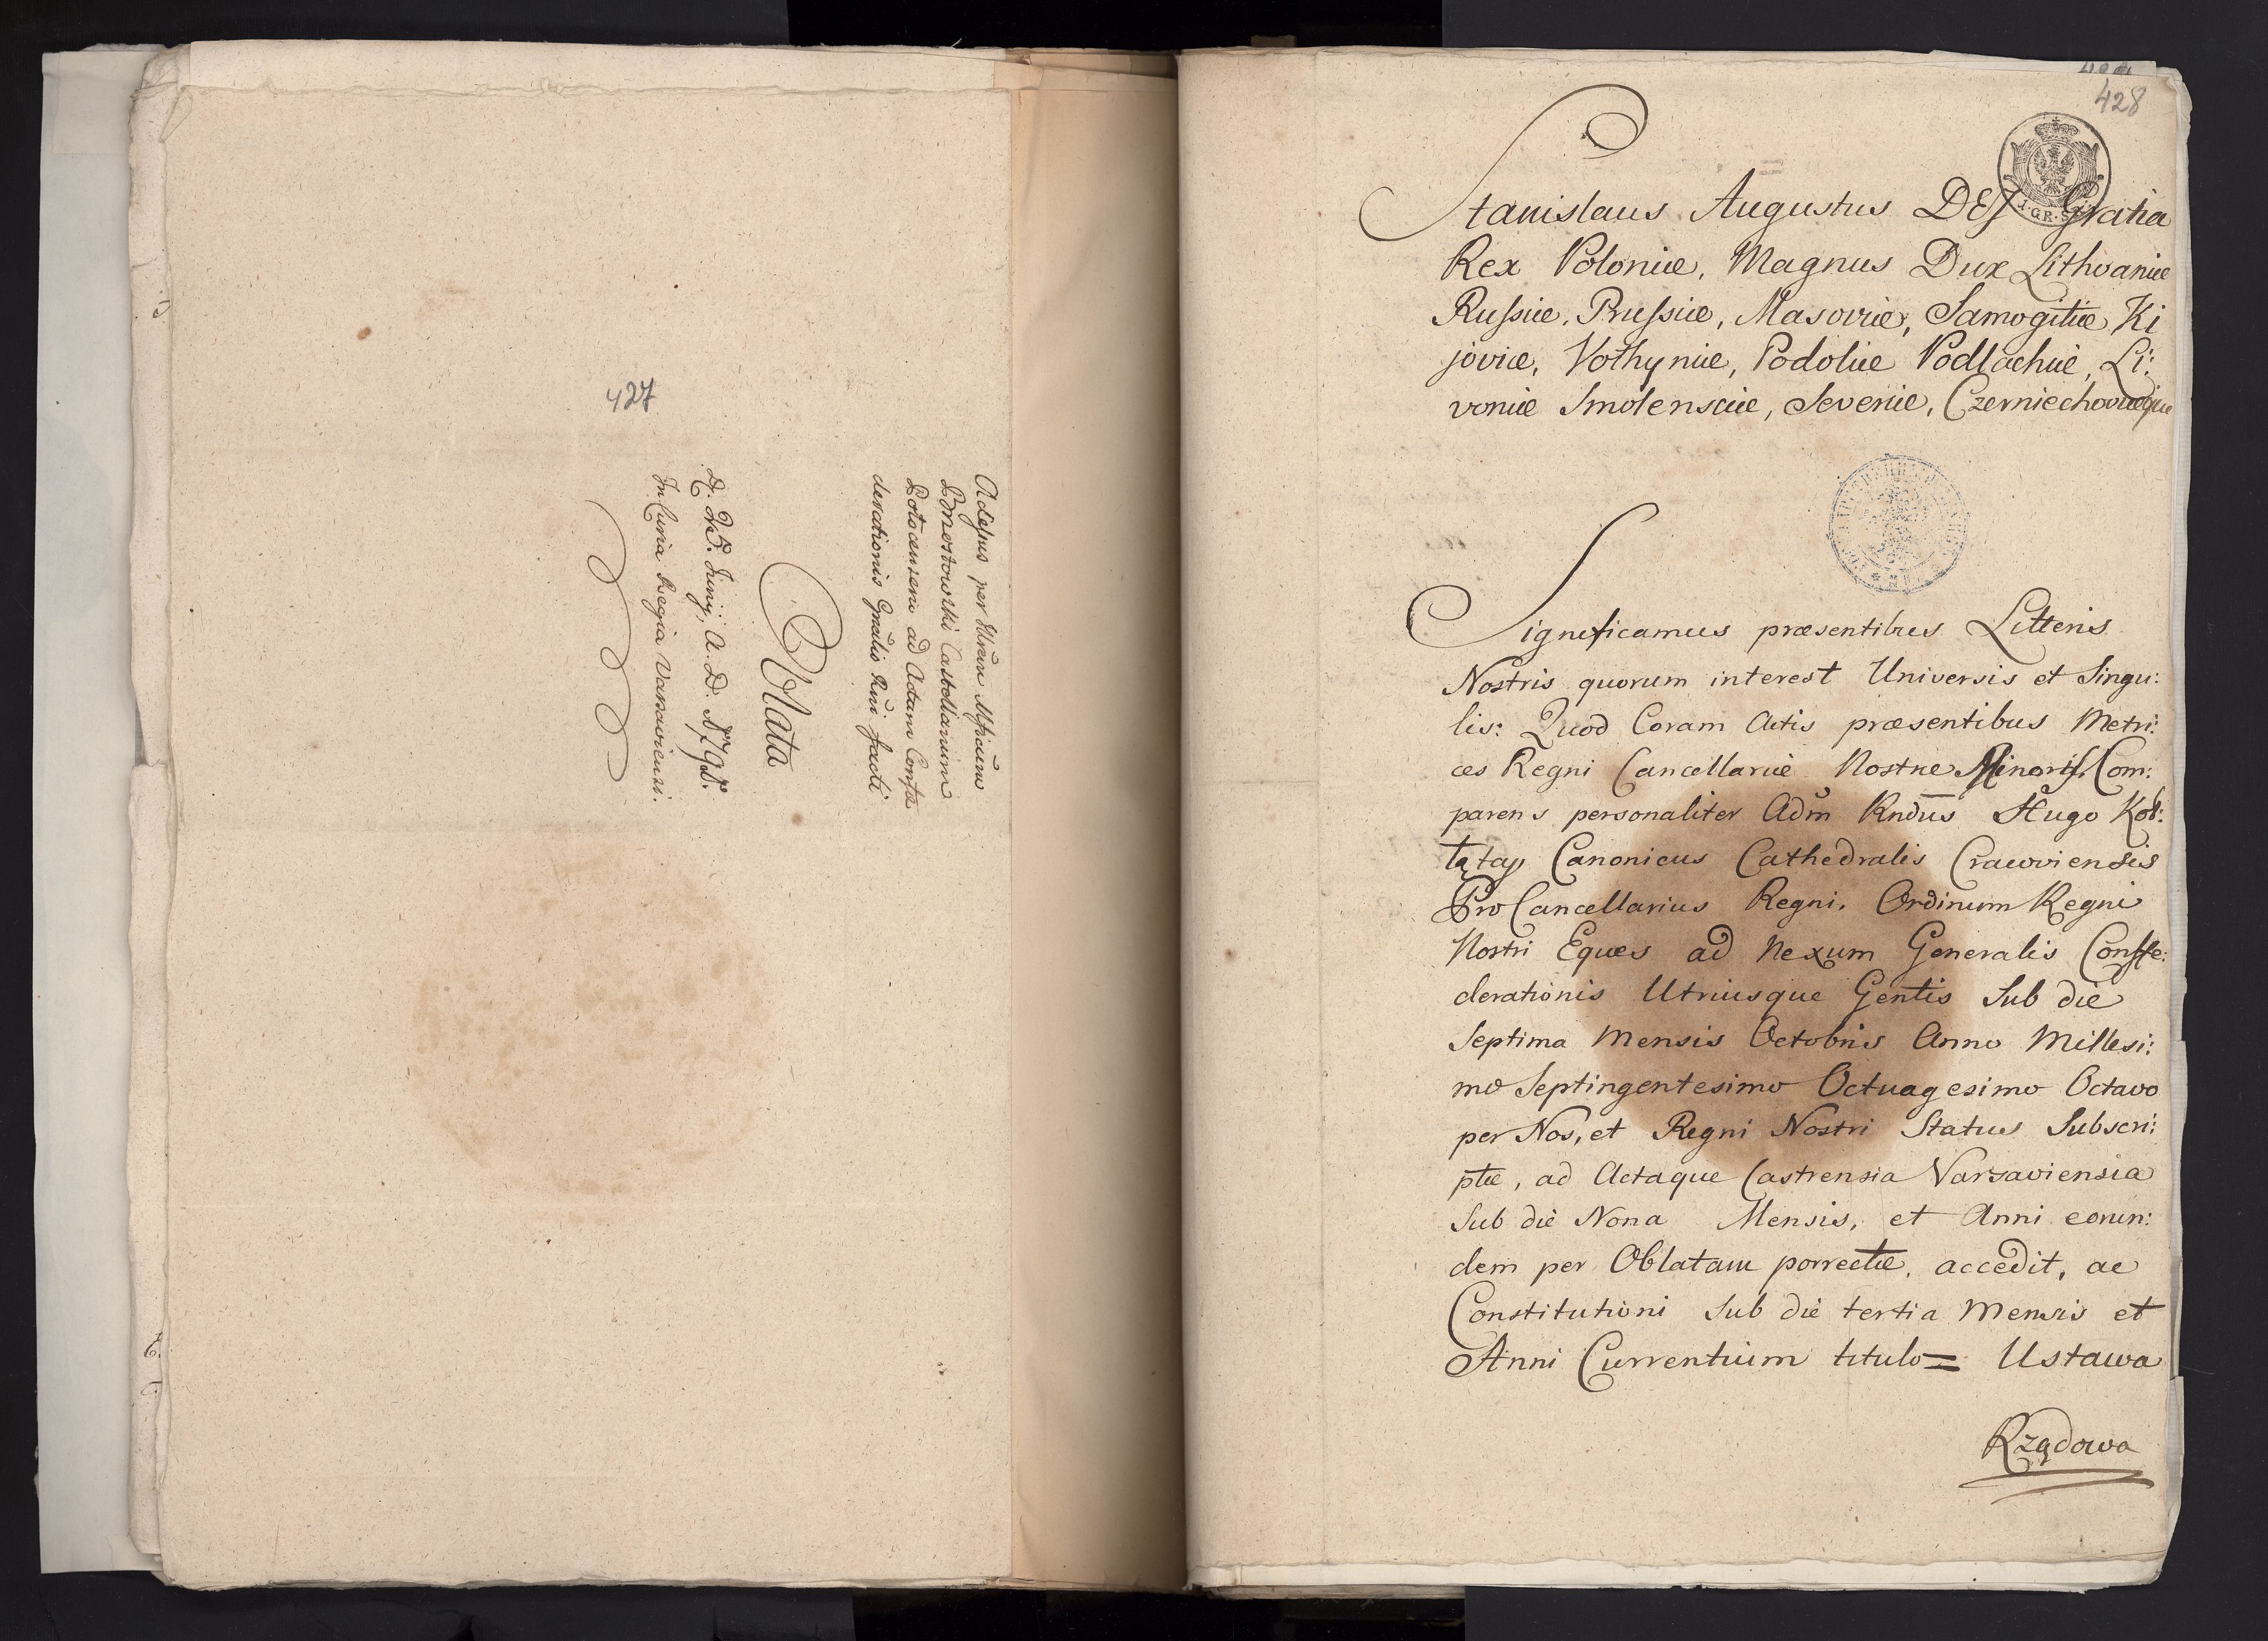 427
Accessus per
Castellanum
ad Actum
derationis Gnalis Rni facti
Oblata
D. 25. Junij, A. D. 1792.
In Curia Regia Varsaviensi.
428
Stanislaus Augustus DEJ Gratia
Rex Poloniæ, Magnus Dux Lithvaniæ
Russiæ, Prussiæ, Masoviæ, Samogitiæ, Ki
joviæ, Volhyniæ, Podoliæ Podlachiæ, Li:
voniæ Smolensciæ, Severiæ, Czerniechoviæque
Significamus præsentibus Litteris
Nostris quorum interest Universis et Singu:
lis: Quod Coram Actis præsentibus Metri:
ces Regni Cancellariæ Nostræ Minoris, Com:
parens personaliter Adm Rndus Hugo Koł:
łątay Canonicus Cathedralis Cracoviensis
Pro Cancellarius Regni, Ordinum Regni
Nostri Eques ad Nexum Generalis Confæ:
derationis Utriusque Gentis Sub die
Septima Mensis Octobris Anno Millesi:
mo Septingentesimo Octuagesimo Octavo
per Nos, et Regni Nostri Status Subscri:
ptæ, ad Actaque Castrensia Varsaviensia
Sub die Nona Mensis, et Anni eorun:
dem per Oblatam porrectæ, accedit, ac
Constitutioni Sub die tertia Mensis et
Anni Currentium titulo = Ustawa
Rządowa